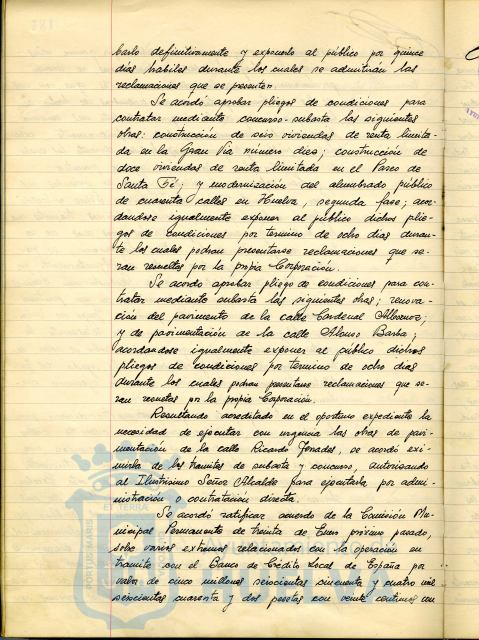 barlo definitivamente y exponerlo al público por quince
días habiles durante los cuales se admitirán las
reclamaciones que se presenten.
Se acordó aprobar pliegos de condiciones para
contratar mediante concurso-subasta las siguientes
obras: construcción de seis viviendas de renta limita-
da en la Gran Via número diez; construcción de
doce viviendas de renta limitada en el Paseo de
Santa Fé; y modernización del alumbrado público
de cuarenta calles en Huelva, segunda fase; acor-
dandose igualmente exponer al público dichos plie-
gos de condiciones por termino de ocho dias duran-
te los cuales podran presentarse reclamaciones que se-
ran resueltas por la propia Corporación.
Se acordó aprobar pliego de condiciones para con-
tratar mediante subasta las siguientes obras; renova-
ción del pavimento de la calle Cardenal Albornoz;
y de pavimentación de la calle Alonso Barba;
acordandose igualmente exponer al público dichos
pliegos de condiciones por termino de ocho dias
durante los cuales podran presentarse reclamaciones que se-
ran resueltas por la propia Corporación.
Resultando acreditado en el oportuno expediente la
necesidad de ejecutar con urgencia las obras de pavi-
mentación de la calle Ricardo Terrades, se acordó exi-
mirla de los tramites de subasta y concurso, autorizando
al Ilustrisimo Señor Alcalde para ejecutarla por admi-
nistración o contratación directa.
Se acordó ratificar acuerdo de la Comisión Mu-
nicipal Permanente de treinta de Enero próximo pasado,
sobre varios extremos relacionados con la operación en
tramite con el Banco de Crédito Local de España por
valor de cinco millones seiscientas cincuenta y cuatro mil
seiscientas cuarenta y dos pesetas con veinte centimos con
PORTUS MARIS
ET TERRÆ